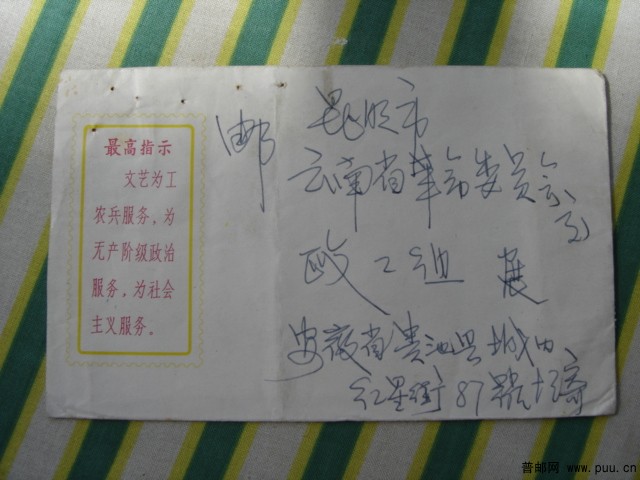 最高指示
文艺为工
农兵服务，为
无产阶级政治
服务，为社会
主义服务。
邮 昆明市
云南省革命委员会
政工组 展
安徽省贵池县城内
红星街87号
普邮网 www.puu.cn